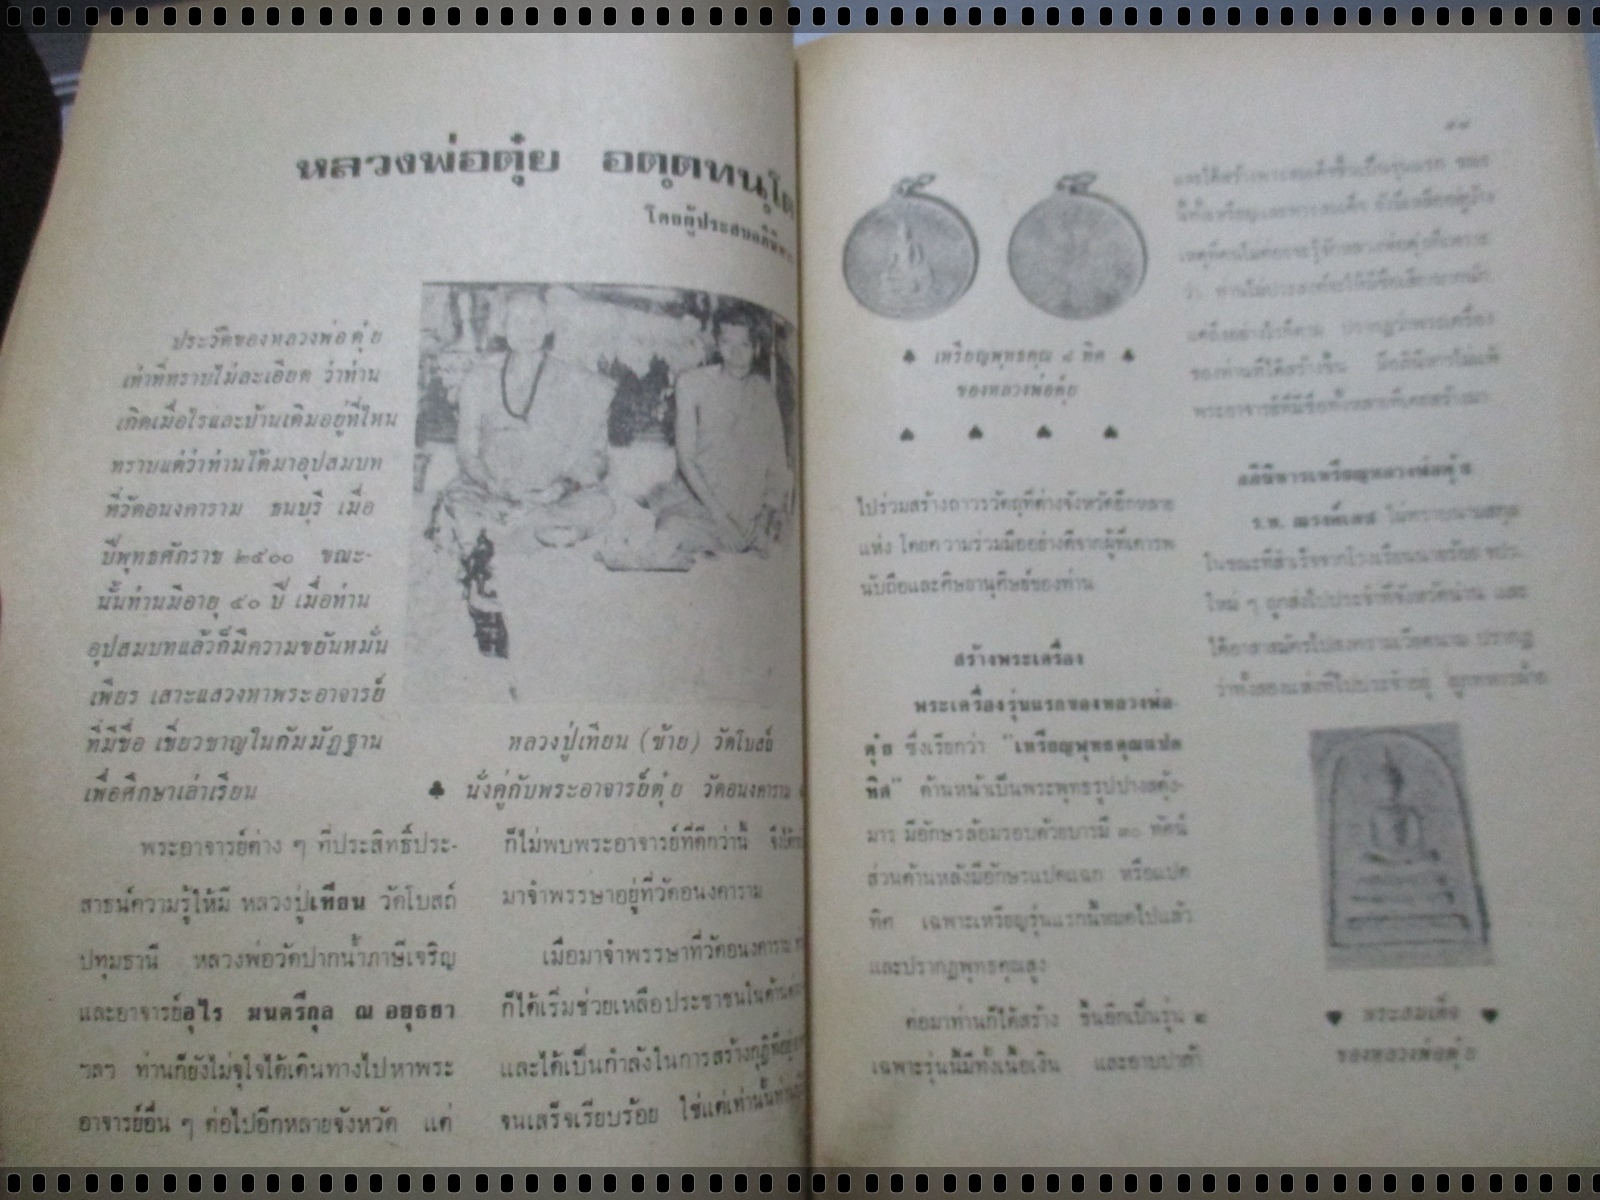 หลวงพ่อตุ๋ย อตฺตทนฺโต
โดยผู้ประสบอภินิหาร
ประวัติของหลวงพ่อตุ๋ย
เท่าที่ทราบไม่ละเอียด ว่าท่าน
เกิดเมื่อไรและบ้านเดิมอยู่ที่ไหน
ทราบแต่ว่าท่านได้มาอุปสมบท
ที่วัดอนงคาราม ธนบุรี เมื่อ
ปีพุทธศักราช ๒๕๐๐ ขณะ-
นั้นท่านมีอายุ ๔๐ ปี เมื่อท่าน
อุปสมบทแล้วก็มีความขยันหมั่น
เพียร เสาะแสวงหาพระอาจารย์
ที่มีชื่อ เชี่ยวชาญในกัมมัฏฐาน
เพื่อศึกษาเล่าเรียน
หลวงปู่เทียน (ซ้าย) วัดโบสถ์
♣ นั่งคู่กับพระอาจารย์ตุ๋ย วัดอนงคาราม
พระอาจารย์ต่าง ๆ ที่ประสิทธิ์ประ-
สาธน์ความรู้ให้มี หลวงปู่เทียน วัดโบสถ์
ปทุมธานี หลวงพ่อวัดปากน้ำภาษีเจริญ
และอาจารย์อุไร มนตรีกุล ณ อยุธยา
ฯลฯ ท่านก็ยังไม่จุใจได้เดินทางไปหาพระ
อาจารย์อื่น ๆ ต่อไปอีกหลายจังหวัด แต่
ก็ไม่พบพระอาจารย์ที่ดีกว่านี้
มาจำพรรษาอยู่ที่วัดอนงคาราม
เมื่อมาจำพรรษาที่วัดอนงคาราม
ก็ได้เริ่มช่วยเหลือประชาชนในด้าน
และได้เป็นกำลังในการสร้างกุฏิที่อยู่
จนเสร็จเรียบร้อย ใช่แต่เท่านั้นท่าน
♠ เหรียญพุทธคุณ ๘ ทิศ ♠
ของหลวงพ่อตุ๋ย
♠ ♠ ♠ ♠
ไปร่วมสร้างถาวรวัตถุที่ต่างจังหวัดอีกหลาย
แห่ง โดยความร่วมมืออย่างดีจากผู้ที่เคารพ
นับถือและศิษยานุศิษย์ของท่าน
สร้างพระเครื่อง
พระเครื่องรุ่นแรกของหลวงพ่อ
ตุ๋ย ซึ่งเรียกว่า "เหรียญพุทธคุณแปด
ทิศ" ด้านหน้าเป็นพระพุทธรูปปางสดุ้ง-
มาร มีอักษรล้อมรอบด้วยบารมี ๓๐ ทัศน์
ส่วนด้านหลังมีอักษรแปดแฉก หรือแปด
ทิศ เฉพาะเหรียญรุ่นแรกนี้หมดไปแล้ว
และปรากฏพุทธคุณสูง
ต่อมาท่านก็ได้สร้าง ขึ้นอีกเป็นรุ่น ๒
เฉพาะรุ่นนี้มีทั้งเนื้อเงิน และอาบปาก้า
และได้สร้างพระสมเด็จขึ้นเป็นรุ่นแรก
นี้ทั้งเหรียญและพระสมเด็จ ยังมีเหลืออยู่บ้าง
เหตุที่คนไม่ค่อยจะรู้จักหลวงพ่อตุ๋ยก็เพราะ
ว่า ท่านไม่ประสงค์จะให้มีชื่อเสียงมากนัก
แต่ถึงอย่างไรก็ตาม ปรากฏว่าพระเครื่อง
ของท่านที่ได้สร้างขึ้น มีอภินิหารไม่แพ้
พระอาจารย์ที่มีชื่อทั้งหลายที่เคยสร้างมา
อภินิหารเหรียญหลวงพ่อตุ๋ย
ร.ท. ณรงค์เดช ไม่ทราบนามสกุล
ในขณะที่สำเร็จจากโรงเรียนนายร้อย จปร.
ใหม่ ๆ ถูกส่งไปประจำที่จังหวัดน่าน และ
ได้อาสาสมัครไปสงครามเวียดนาม ปรากฏ
ว่าทั้งสองแห่งที่ไปประจำอยู่ ลูกทหารฝ่าย
♥ พระสมเด็จ ♥
ของหลวงพ่อตุ๋ย